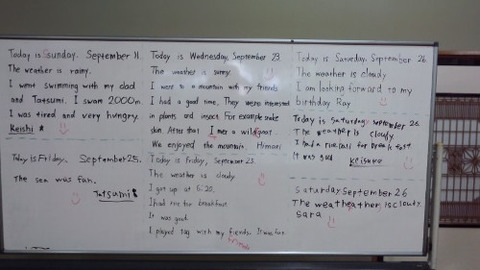 Today is Sunday. September 11.
The weather is rainy.
I went swimming with my dad
and Tatsumi. I swam 2000m.
I was tired and very hungry.
Keishi
Today is Friday. September 25.
The sea was fan.
Tatsumi
Today is Wednesday, September 23.
The weather is sunny.
I went to a mountain with my friends.
I had a good time. They were interested
in plants and insect. For example snake
skin. After that I met a wild goat.
We enjoyed the mountain. Himari
Today is friday, September 25.
The weather is cloudy.
I got up at 6:20.
I had rice for breakfast.
It was good.
I played tag with my friends. It was fun.
friends
Today is Saturday, September 26.
The weather is cloudy
I am looking forward to my
birthday Ray
Today is saturday, september 26
The weather is cloudy.
I had a rice ball for breakfast
It was good
Keisuke
Saturday September 26
The weather is cloudy.
Sara